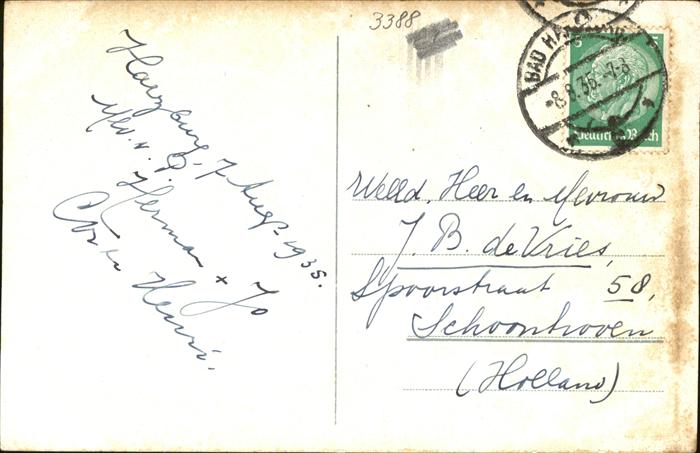 3388
BAD HA
-8.8.35.-7-8
5
Deutsches Reich
Harzburg, 7 Aug. 1935.
Herman x Jo
Henri.
WelEd. Heer en Mevrouw
J. B. de Vries,
Spoorstraat 58,
Schoonhoven
(Holland)